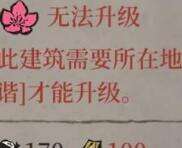 无法升级
此建筑需要所在地
谐]才能升级。
170 100